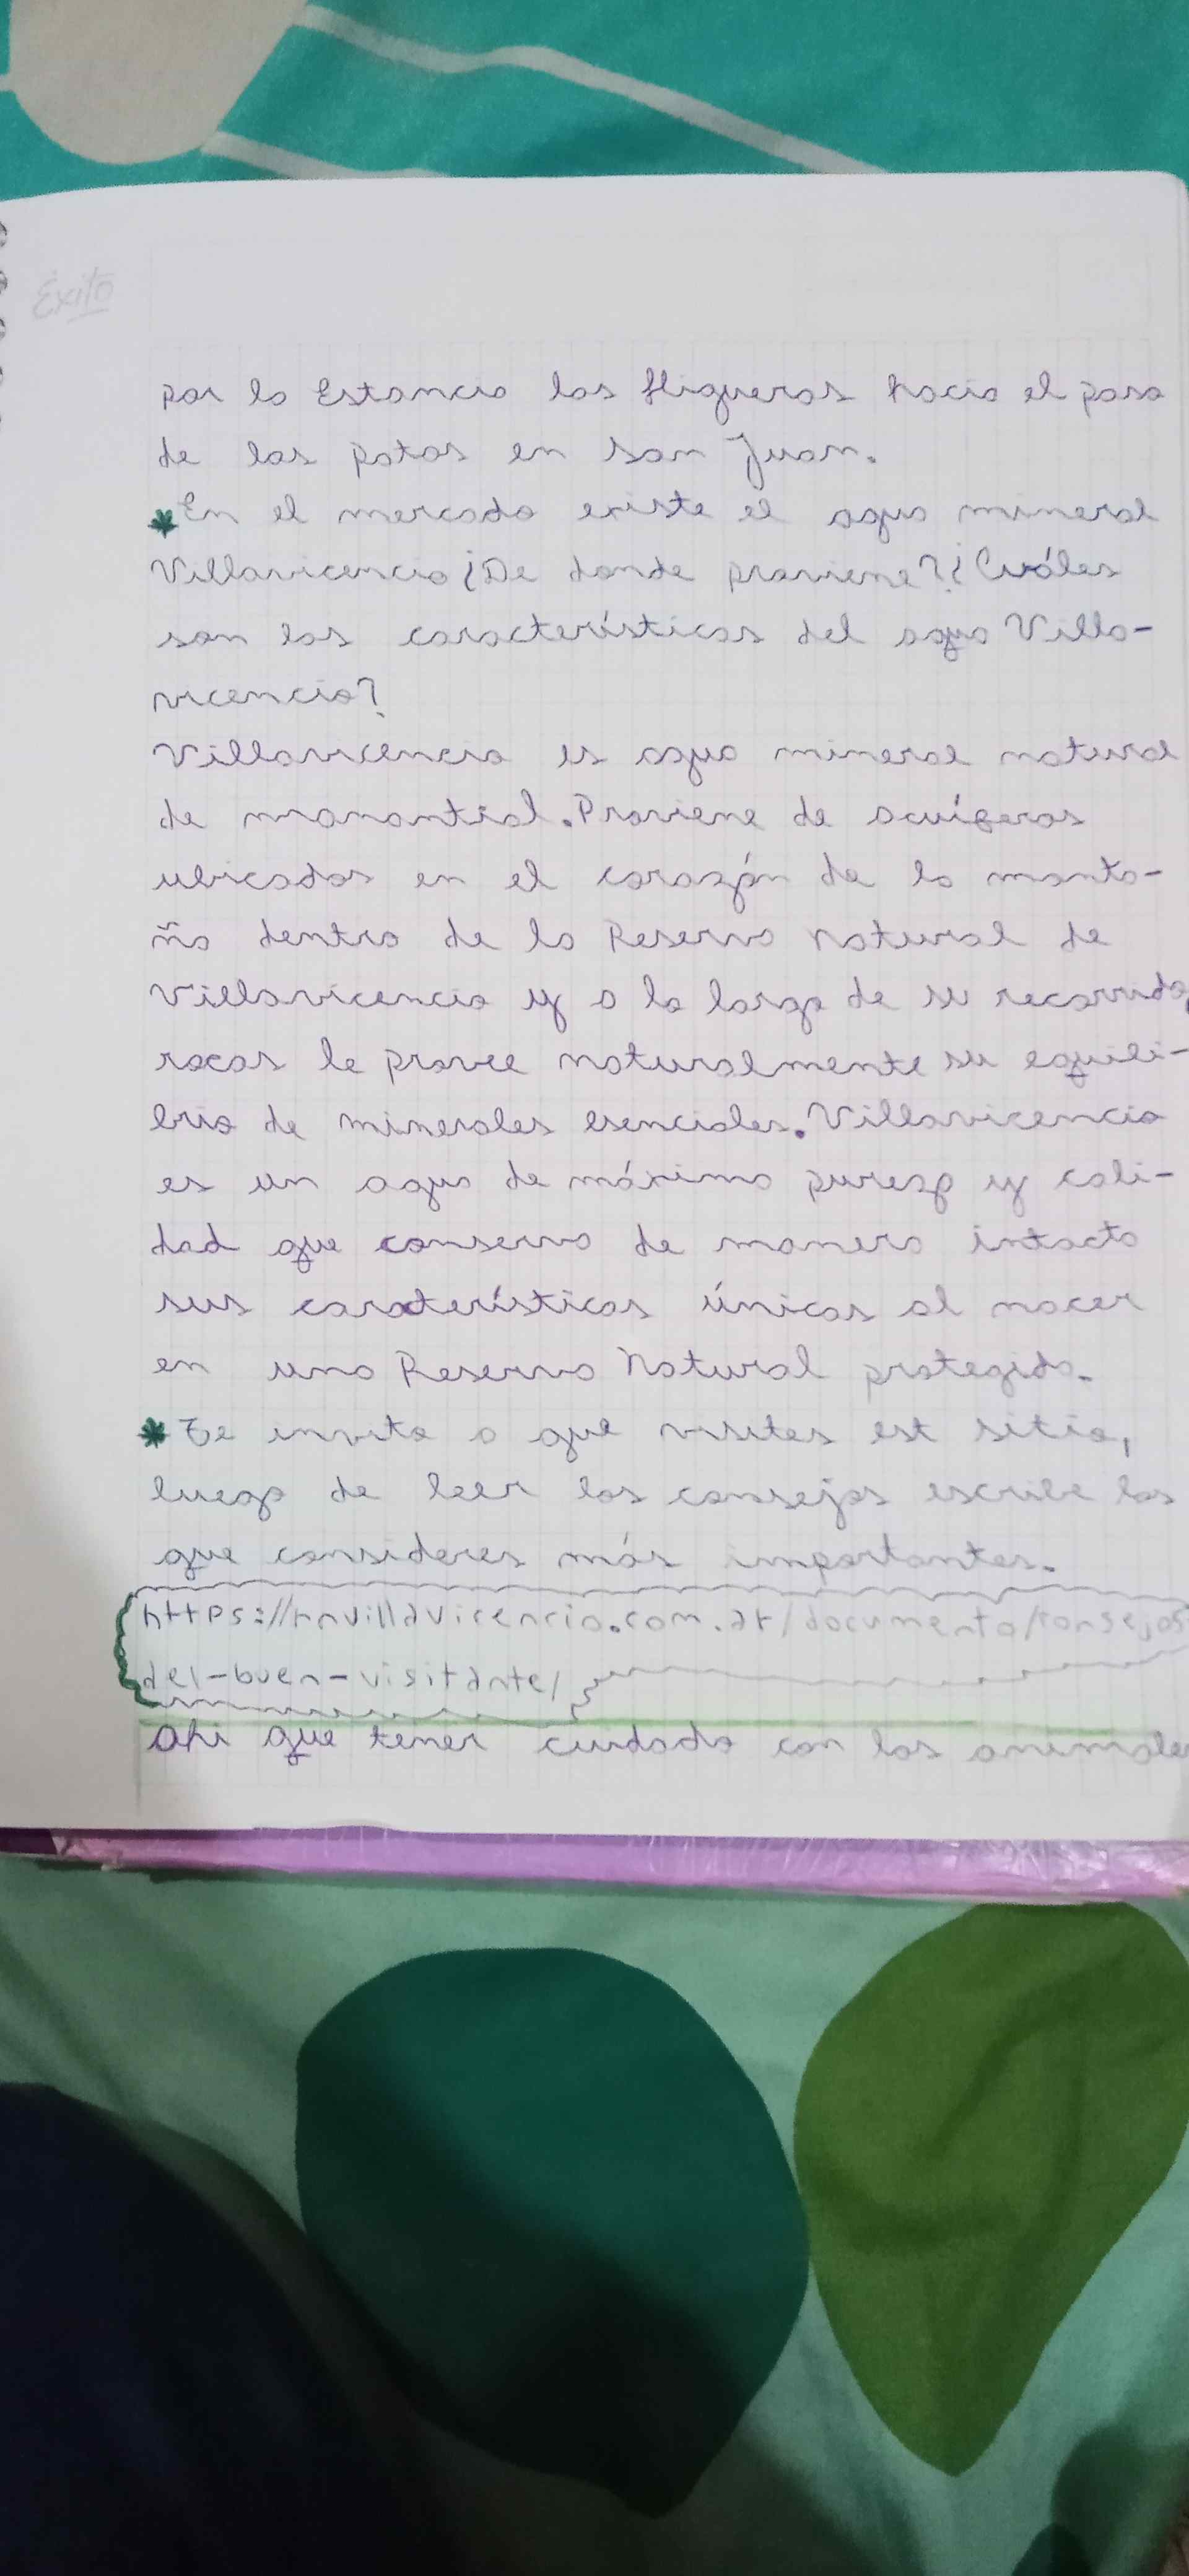 Éxito
por la Estancia las Higueras hacia el paso
de los patos en San Juan.
*En el mercado existe el agua mineral
Villavicencio ¿De donde proviene? ¿Cuáles
son las características del agua Villa-
vicencio?
Villavicencio es agua mineral natural
de manantial. Proviene de acuíferos
ubicados en el corazón de la monta-
ña dentro de la Reserva Natural de
Villavicencio y a lo largo de su recorrido,
rocas le provee naturalmente su equili-
brio de minerales esenciales. Villavicencio
es un agua de máxima pureza y cali-
dad que conserva de manera intacta
sus características únicas al nacer
en una Reserva Natural protegida.
*Te invito a que visites est sitio,
luego de leer los consejos escribe los
que consideres más importantes.
https://rnvillavicencio.com.ar/documento/consejos
del-buen-visitante/
Ahi que tener cuidado con los animales